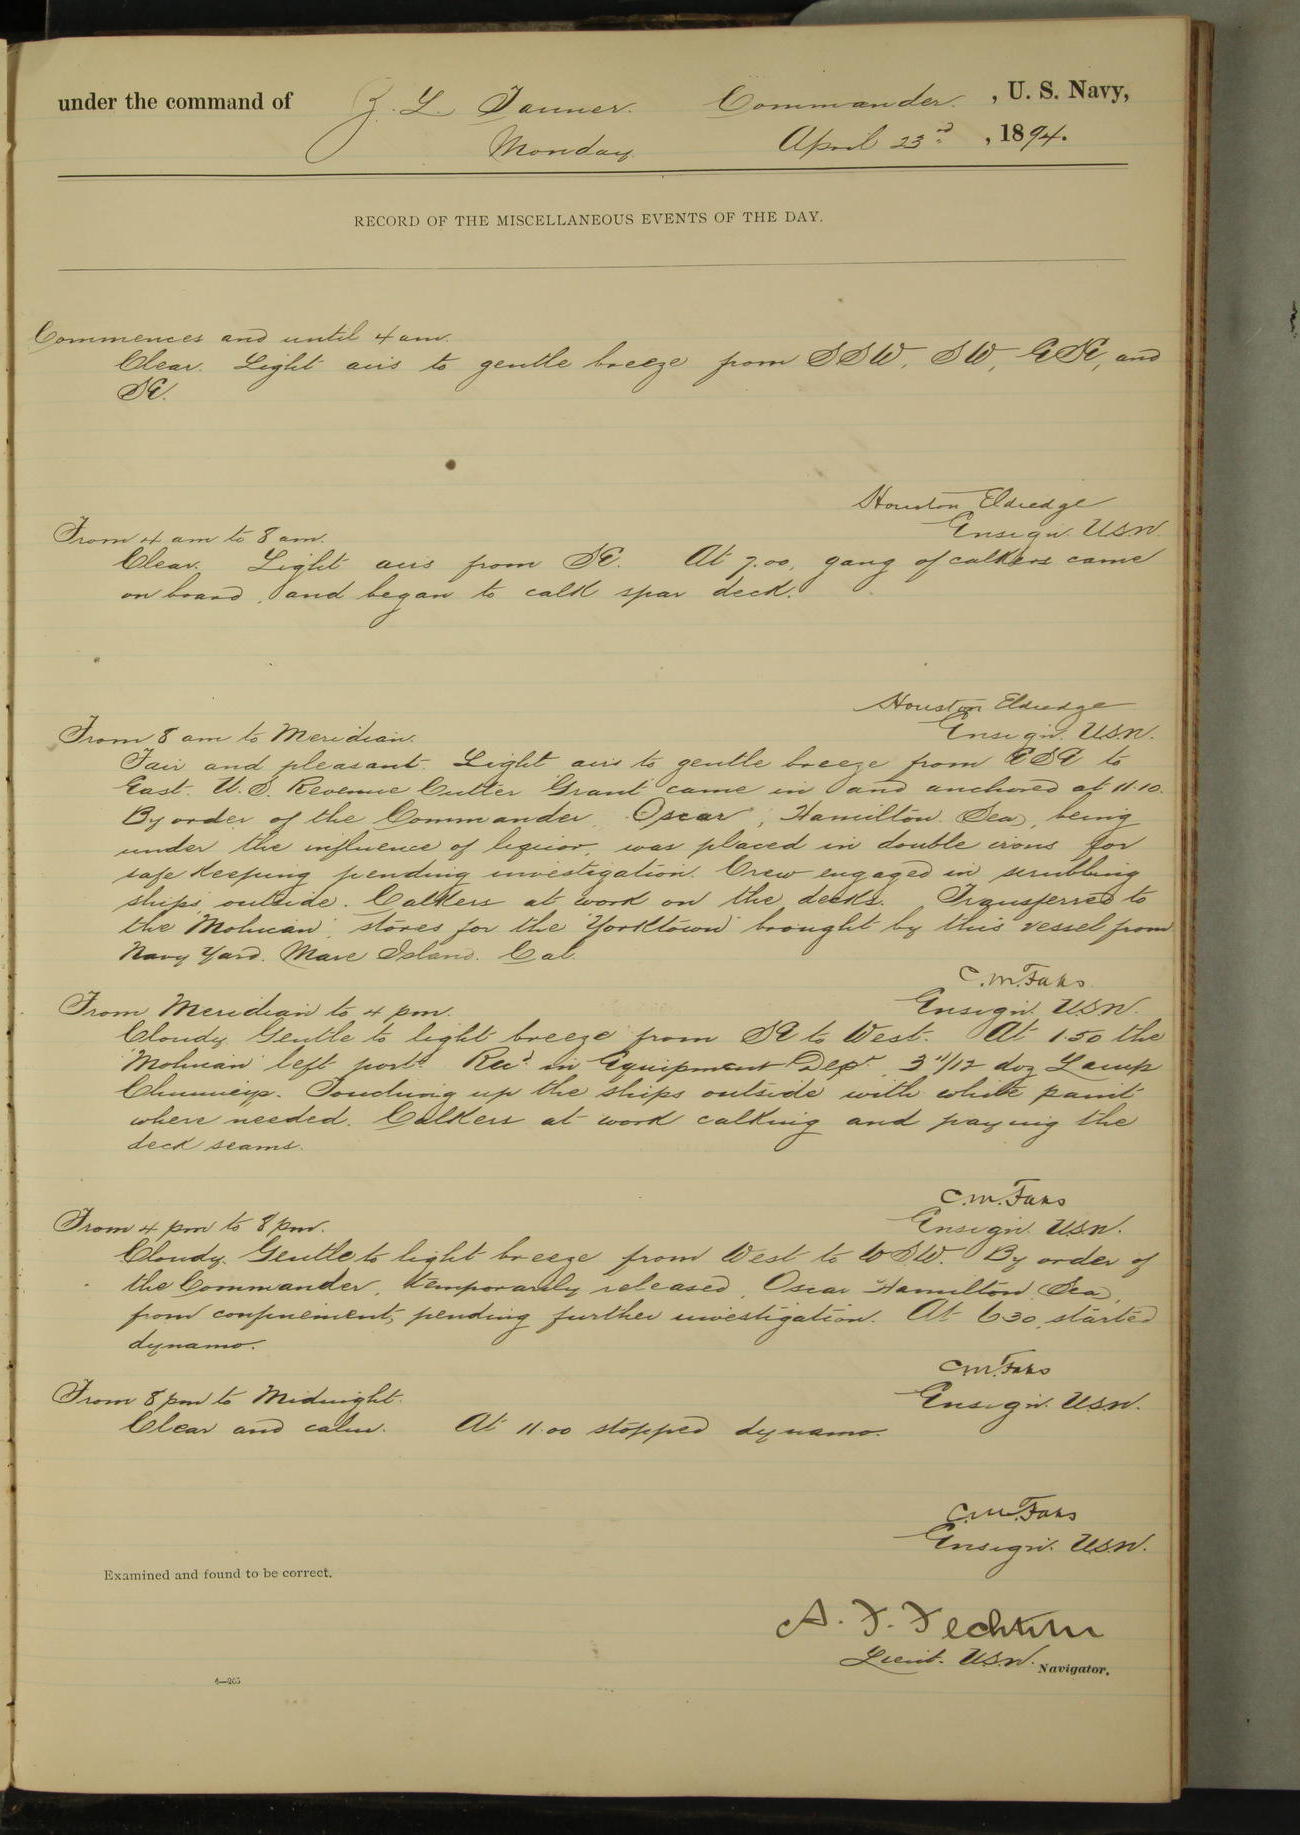 under the command of Z. L. Tanner. Commander. , U. S. Navy,
Monday April 23rd , 1894.
RECORD OF THE MISCELLANEOUS EVENTS OF THE DAY.
Commences and until 4 am.
Clear. Light airs to gentle breeze from SSW, SW, ESE, and
SE.
Houston Eldredge
Ensign. USN.
From 4 am to 8 am.
Clear. Light airs from SE. At 7.00, gang of calkers came
on board, and began to calk spar deck.
Houston Eldredge
Ensign. USN.
From 8 am to Meridian.
Fair and pleasant. Light airs to gentle breeze from ESE to
East. U. S. Revenue Cutter "Grant" came in and anchored at 11.10.
By order of the Commander, Oscar, Hamilton. Sea, being
under the influence of liquor, was placed in double irons for
safe keeping pending investigation. Crew engaged in scrubbing
ships outside. Calkers at work on the decks. Transferred to
the "Mohican", stores for the "Yorktown" brought by this vessel from
Navy Yard. Mare Island. Cal.
C. M. Fahs.
Ensign. USN.
From Meridian to 4 pm.
Cloudy Gentle to light breeze from SE to West. At 1.50 the
"Mohican" left port. Rec'd in Equipment Dept, 3 11/12 doz Lamp
Chimneys. Touching up the ships outside with white paint
where needed. Calkers at work calking and paying the
deck seams.
C. M. Fahs
Ensign. USN.
From 4 pm to 8 pm.
Cloudy. Gentle to light breeze from West to WSW. By order of
the Commander, temporarily released, Oscar Hamilton (Sea),
from confinement, pending further investigation. At 6.30, started
dynamo.
C. M. Fahs
Ensign. USN.
From 8 pm to Midnight.
Clear and calm. At 11.00 stopped dynamo.
C. M. Fahs
Ensign. USN.
Examined and found to be correct.
A. F. Fechteler
Lieut. USN. Navigator.